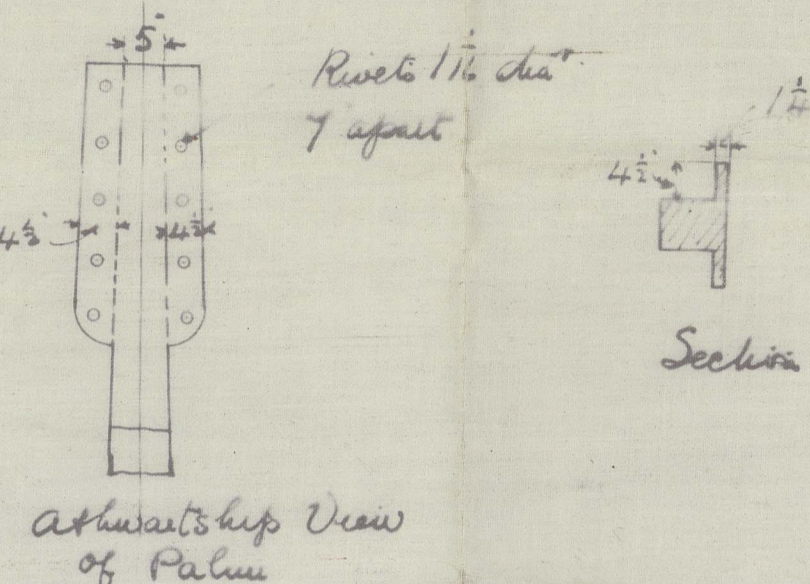 5"
Rivets 1 1/16 dia r.
7 apart
1 1/4
4 1/2
4 1/2"
4 1/2"
Section
Athwartship View
of Palm